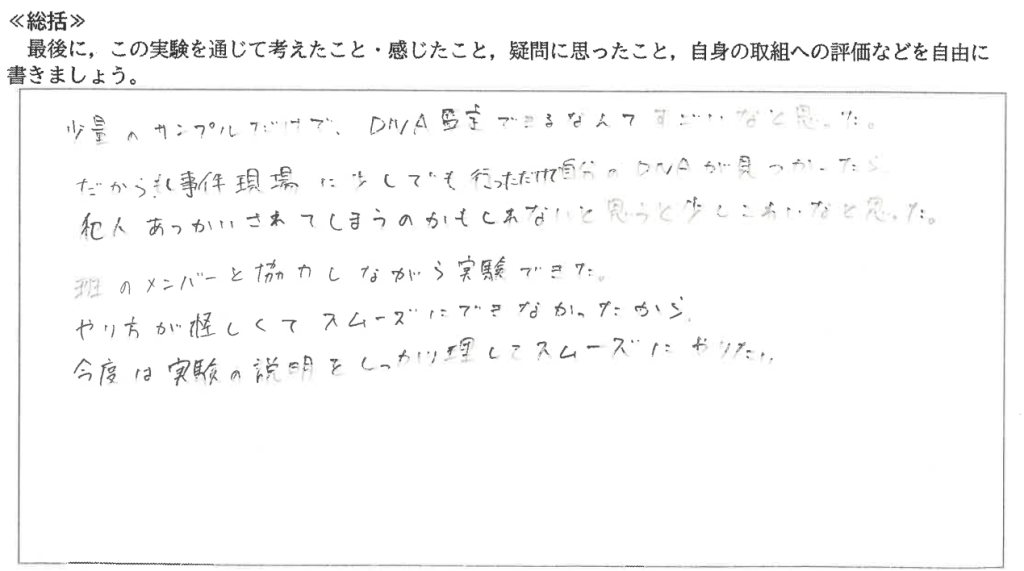 ≪総括≫
最後に，この実験を通じて考えたこと・感じたこと，疑問に思ったこと，自身の取組への評価などを自由に
書きましょう。
少量のサンプルだけで、DNA鑑定できるなんてすごいなと思った。
だからもし事件現場に少しでも行っただけで自分のDNAが見つかったら
犯人あつかいされてしまうのかもしれないと思うと少しこわいなと思った。
班のメンバーと協力しながら実験できた。
やり方が怪しくてスムーズにできなかったから、
今度は実験の説明をしっかり理してスムーズにやりたい。